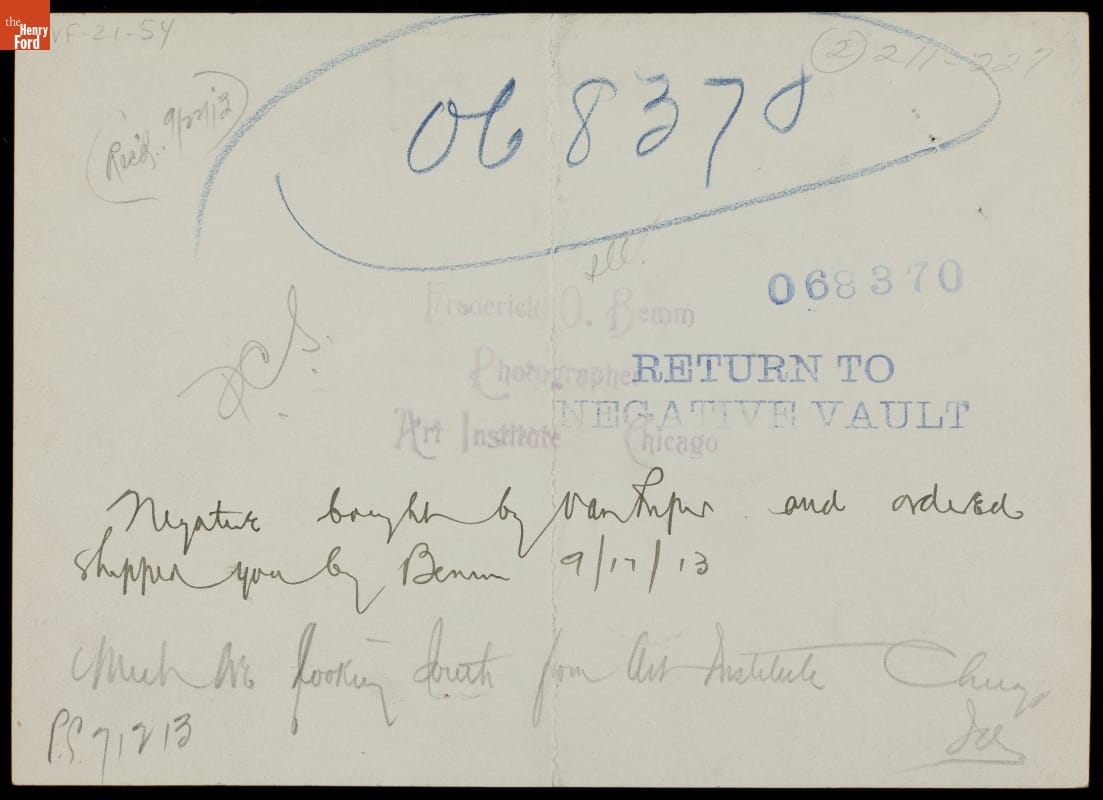 the Henry Ford
VF-21-54
② 211-227
Rec'd. 9/22/13
068370
068370
Frederick O. Bemm
Photographer
Art Institute Chicago
RETURN TO
NEGATIVE VAULT
Negative bought by and ordered
shipped you by Bemm 9/17/13
Mich Ave looking South from Art Institute Chicago
P.S. 71213